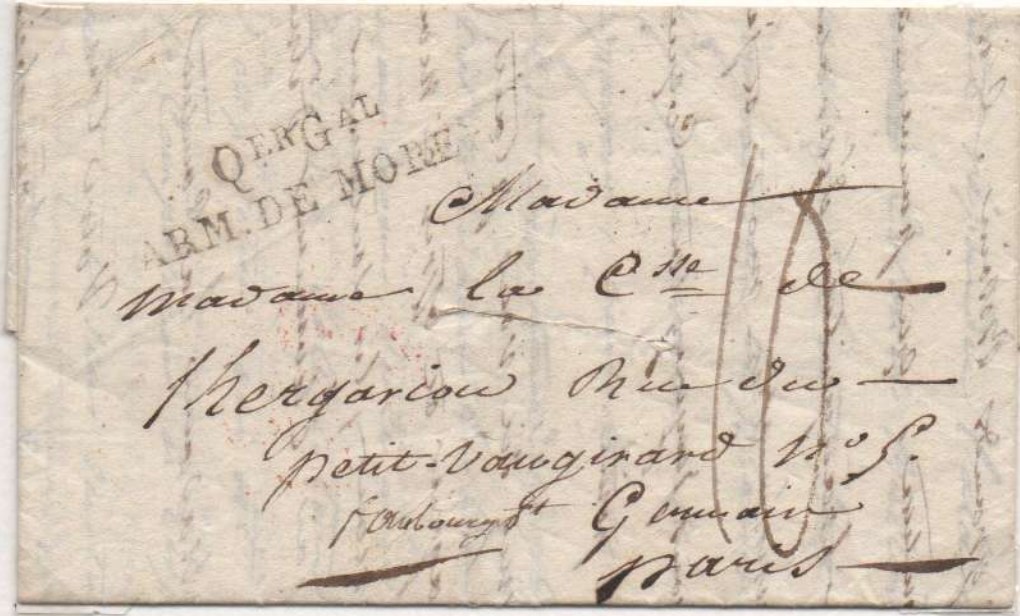 QERGAL
ARM. DE MOREE
Madame
10
madame la Csse de
Kergariou Rue du
petit-Vaugirard n° 5.
faubourg st Germain
paris